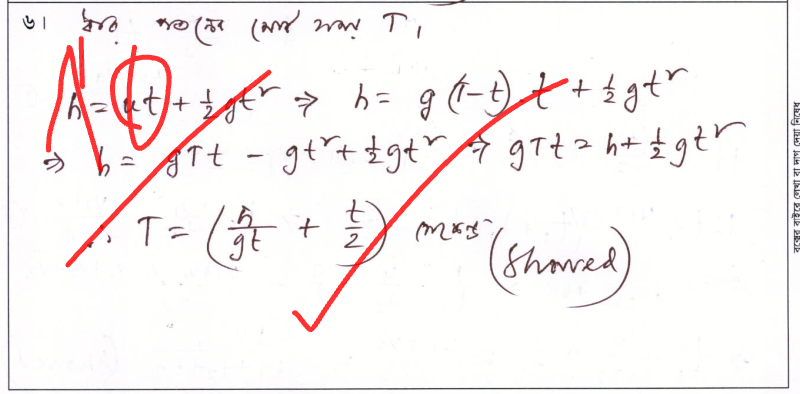 ৬। ধরি, পতনের মোট সময় T,
h = ut + ½gt² ⇒ h = g(T-t).t + ½gt²
⇒ h = gTt - gt² + ½gt² ⇒ gTt = h + ½gt²
∴ T = (h/gt + t/2) সেকেন্ড (Showed)
বক্সের বাইরে লেখা বা দাগ দেয়া নিষেধ